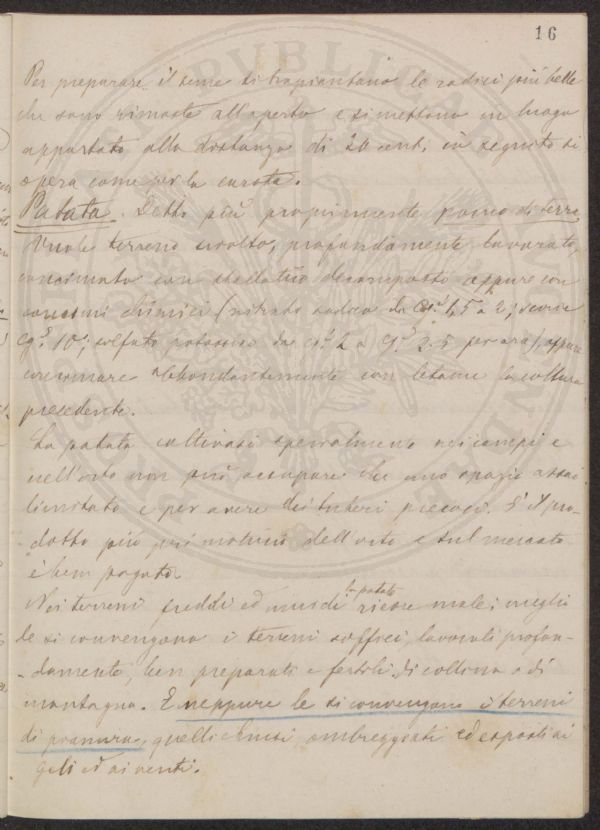 16
Per preparare il seme si trapiantano le radici più belle
che sono rimaste all'aperto e si mettono in luogo
appartato alla distanza di 20 cent, in seguito si
opera come per la carota.
Patata. Detta più propriamente pomo di terra
Vuole terreno sciolto, profondamente lavorato,
concimato con stallatico decomposto oppure con
concimi chimici (nitrato sodico da cg.ⁱ 1,5 a 2; scorie
cg.ⁱ 10; solfato potassico da cg.ⁱ 2 a cg.ⁱ 2.5 per ara), oppure
concimare abbondantemente con letame la coltura
precedente.
La patata coltivasi specialmente nei campi e
nell'orto non può occupare che uno spazio assai
limitato e per avere dei tuberi precoci. È il pro-
-dotto più dell'orto e sul mercato
è ben pagato.
Nei terreni freddi ed umidi la patata riesce male; meglio
le si convengono i terreni soffici, lavorati profon-
-damente, ben preparati e fertili di collina o di
montagna. E neppure le si convengono i terreni
di pianura, quelli chiusi ombreggiati ed esposti ai
geli ed ai venti.
REI PUBLICAE